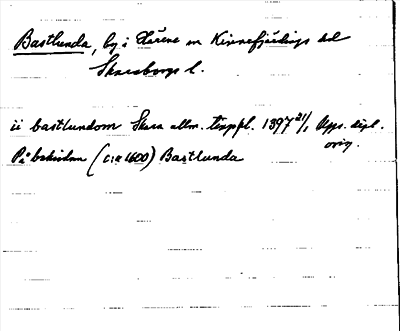 Bastlunda, by i Härene sn Kinnefjärdings hd
Skaraborgs l.
ii bastlundom Skara allm. 1397 21/1 Upps. dipl.
orig.
På baksidan (c:a 1600) Bastlunda